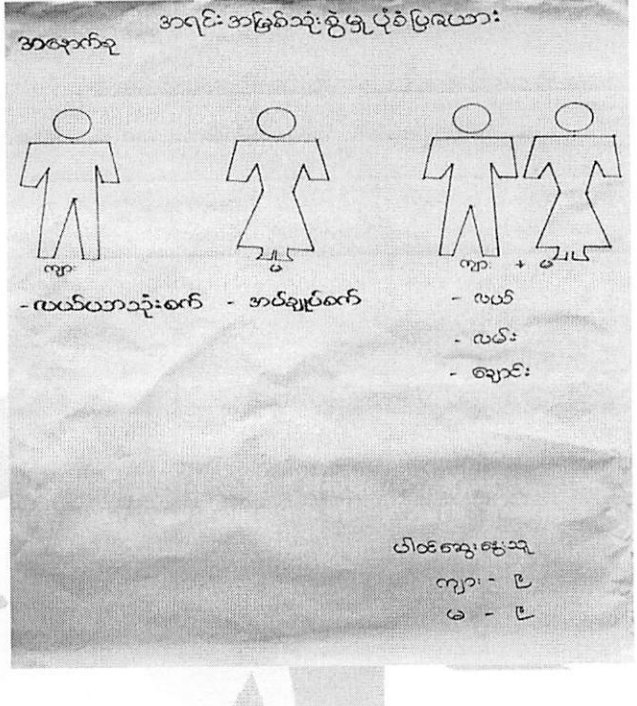 အရင်းအမြစ်သုံးစွဲမှု ပုံစံပြဇယား
အနောက်စု
ကျား
မ
ကျား + မ
- လယ်ယာသုံးစက်
- အပ်ချုပ်စက်
- လယ်
- လမ်း
- ချောင်း
ပါဝင်ဆွေးနွေးသူ
ကျား - ၉
မ - ၉